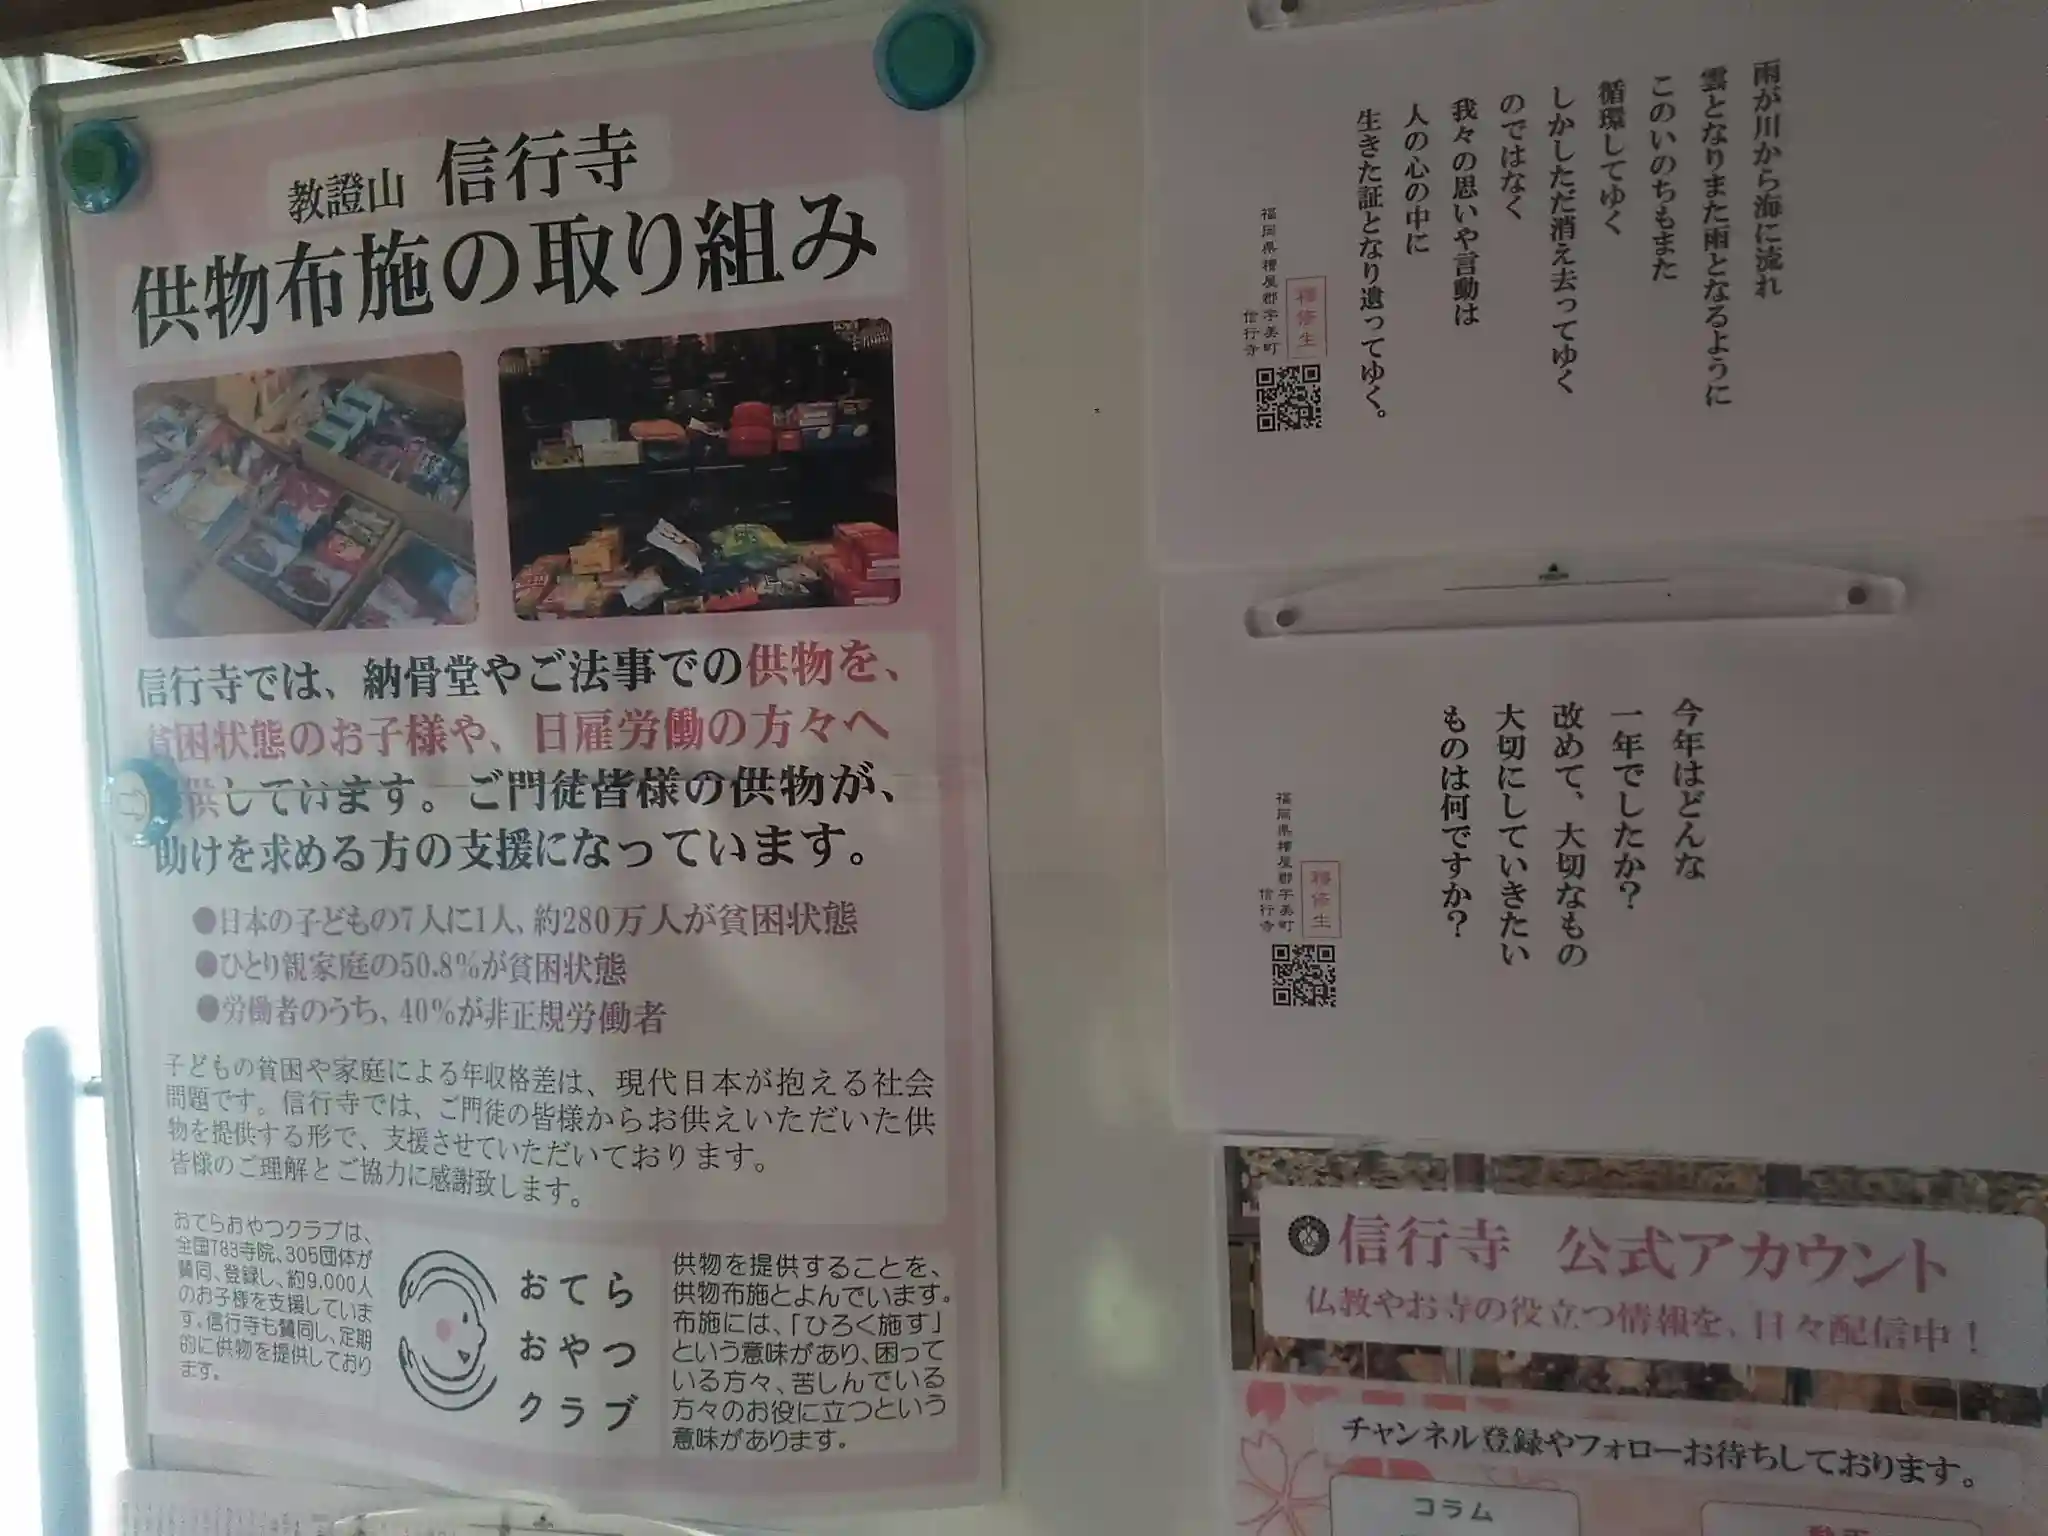 教證山 信行寺
供物布施の取り組み
信行寺では、納骨堂やご法事での供物を、
貧困状態のお子様や、日雇労働の方々へ
供しています。ご門徒皆様の供物が、
助けを求める方の支援になっています。
●日本の子どもの7人に1人、約280万人が貧困状態
●ひとり親家庭の50.8%が貧困状態
●労働者のうち、40%が非正規労働者
子どもの貧困や家庭による年収格差は、現代日本が抱える社会
問題です。信行寺では、ご門徒の皆様からお供えいただいた供
物を提供する形で、支援させていただいております。
皆様のご理解とご協力に感謝致します。
おてらおやつクラブは、
全国783寺院、305団体が
賛同、登録し、約9,000人
のお子様を支援していま
す。信行寺も賛同し、定期
的に供物を提供しており
ます。
おてら
おやつ
クラブ
供物を提供することを、
供物布施とよんでいます。
布施には、「ひろく施す」
という意味があり、困って
いる方々、苦しんでいる
方々のお役に立つという
意味があります。
雨が川から海に流れ
雲となりまた雨となるように
このいのちもまた
循環してゆく
しかしただ消え去ってゆく
のではなく
我々の思いや言動は
人の心の中に
生きた証となり遺ってゆく。
釋修生
福岡県糟屋郡宇美町
信行寺
今年はどんな
一年でしたか？
改めて、大切なもの
大切にしていきたい
ものは何ですか？
釋修生
福岡県糟屋郡宇美町
信行寺
信行寺 公式アカウント
仏教やお寺の役立つ情報を、日々配信中！
チャンネル登録やフォローお待ちしております。
コラム